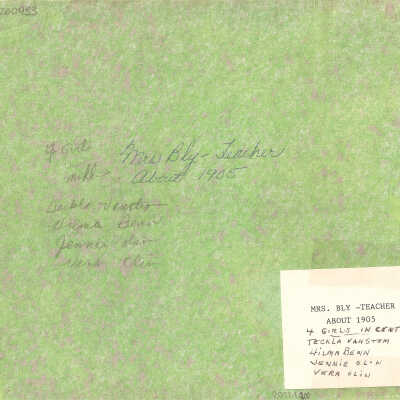 4 Girl
Mrs Bly - Teacher
About 1905
Teckla Vanstom
Wilma Benn
Jennie Olin
Vera Olin
MRS. BLY -TEACHER
ABOUT 1905
4 GIRLS IN CENT
TECKLA VANSTOM
WILMA BENN
JENNIE OLIN
VERA OLIN